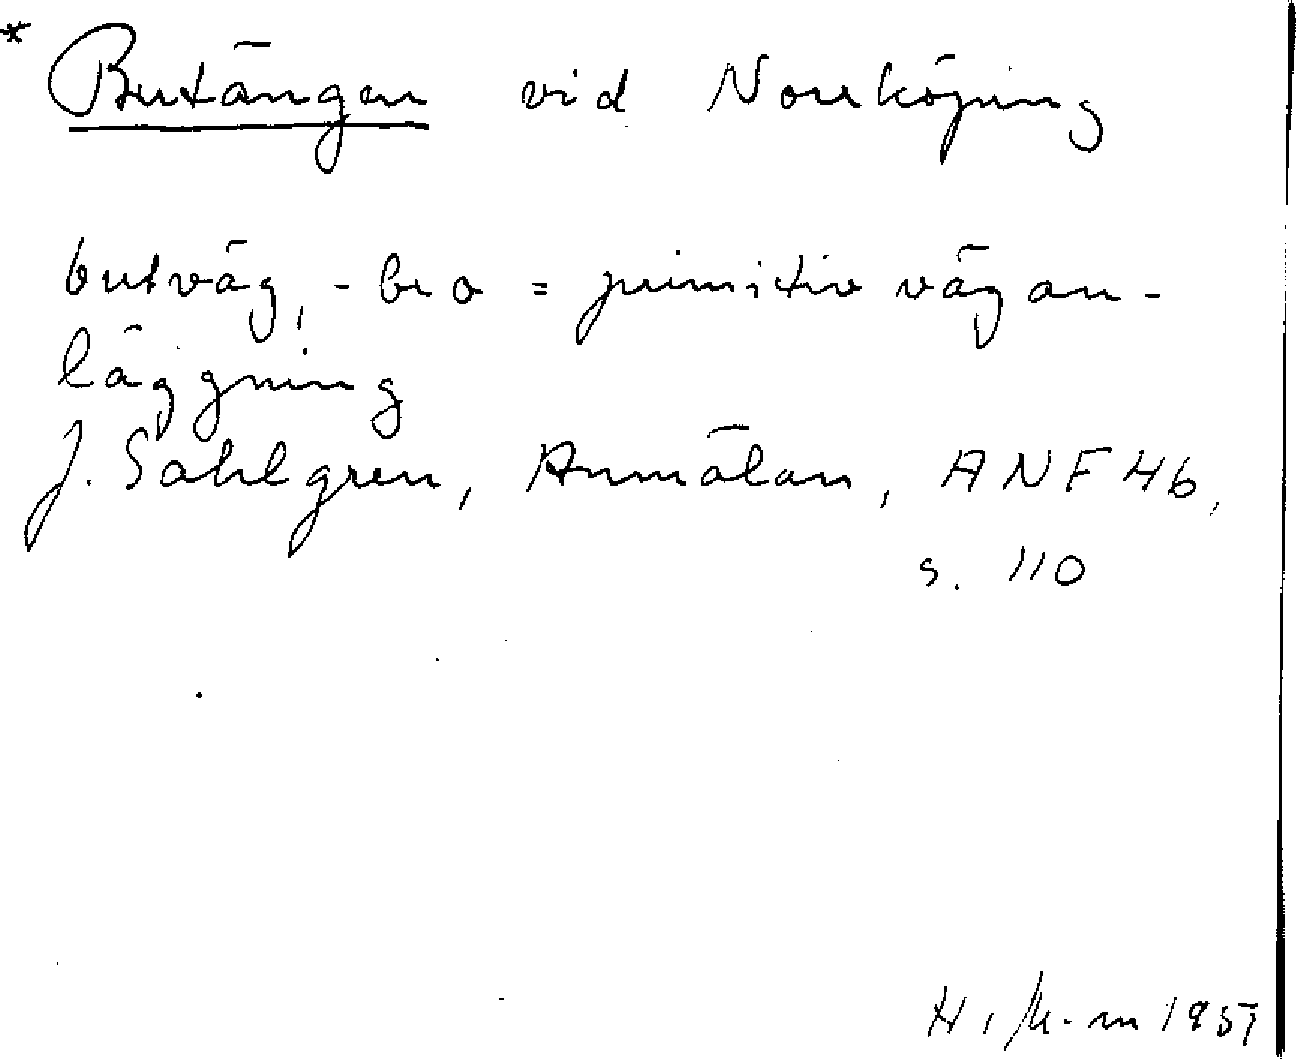 * Butängen vid Norrköping
butväg, -bro = primitiv vägan-
läggning
J. Sahlgren, Anmälan, ANF 46,
s. 110
1957